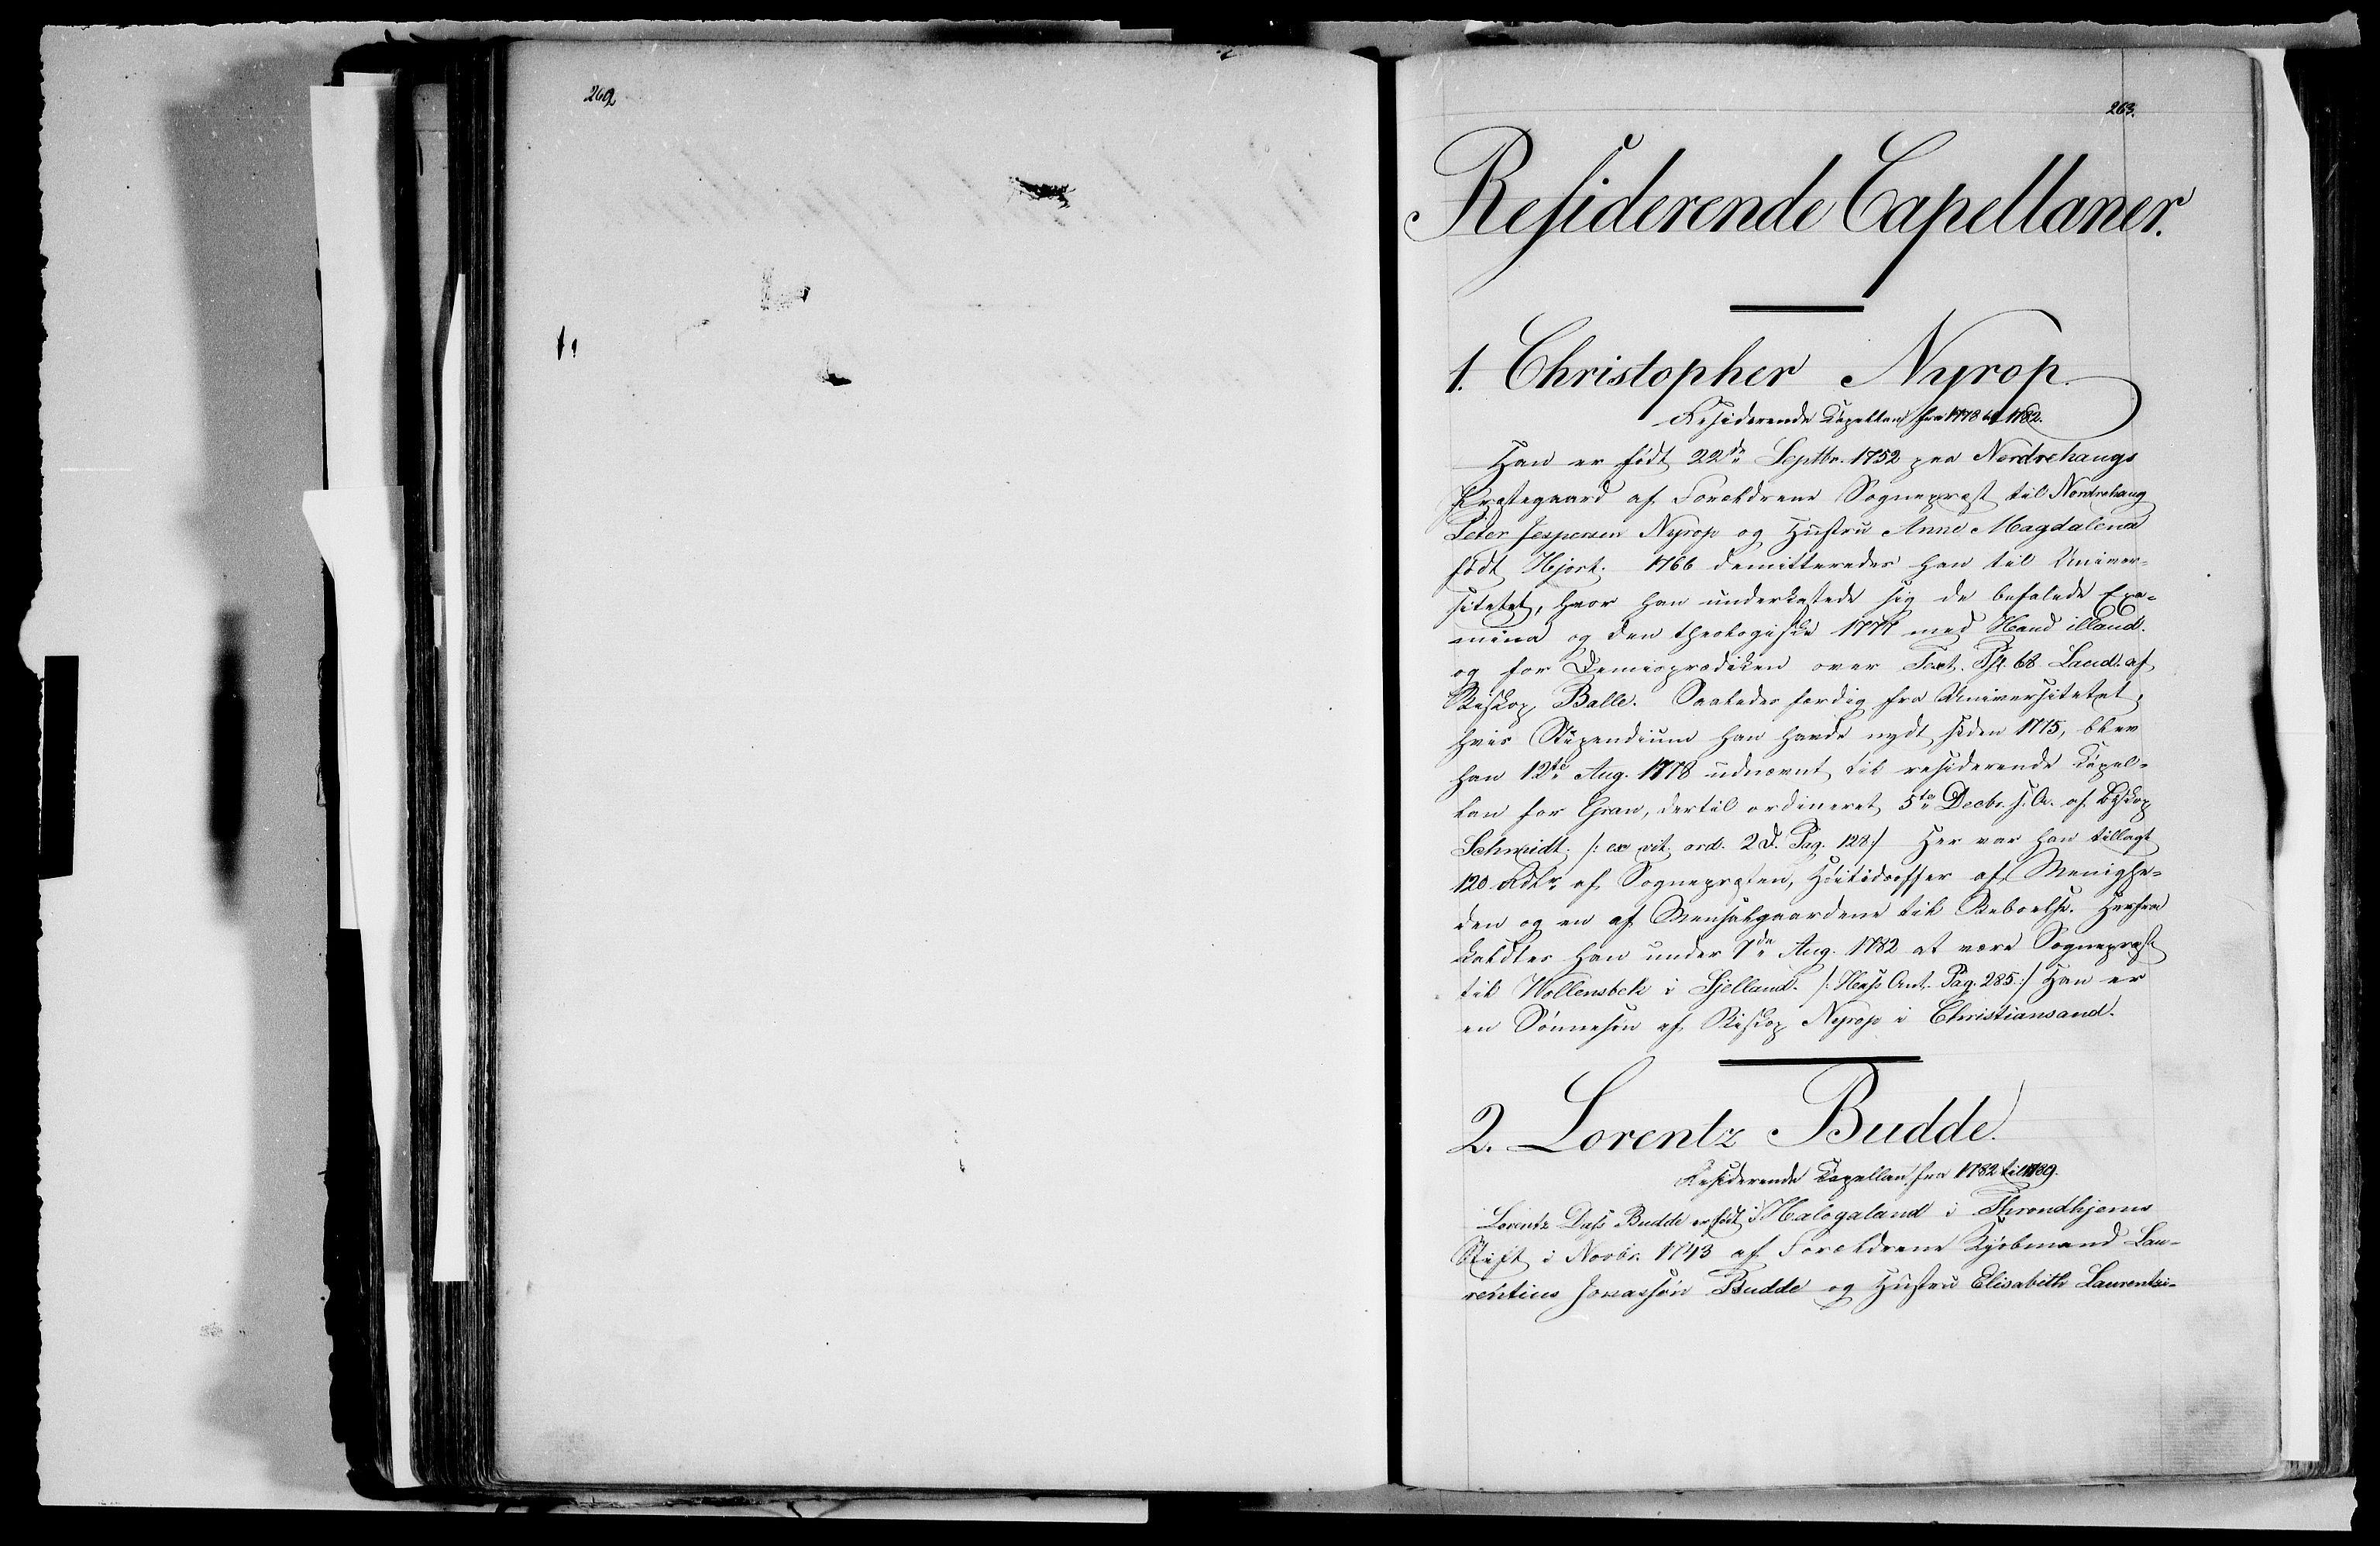 262
263.
Residerende Capellaner.
1. Christopher Nyrop.
Residerende Capellan fra 1778 til 1782.
Han er født 22de Septbr. 1752 paa Nordrehaugs
Præstegaard af Forældrene Sognepræst til Nordrehaug
Peter Jespersen Nyrop og Hustru Anne Magdalena
født Hjort. 1766 demitteredes han til Univer-
sitetet, hvor han underkastede sig de befalede Exa-
mina og den theologiske 1777 med Haud illaud.
og for Demisprædiken over Text. Ps. 68 Laud. af
Biskop Balle. Saaledes færdig fra Universitetet,
hvis Stipendium han havde nydt siden 1775, blev
han 12te Aug. 1778 udnævnt til residerende Capel-
lan for Gran, dertil ordineret 5te Decbr. s. A. af Biskop
Schmidt. /: ex vit. ord. 2 D. Pag. 128 :/ Her var han tillagt
120 Rdlr. af Sognepræsten, Høitidsoffer af Menighe-
den og en af Mensalgaardene til Beboelse. Herfra
kaldtes han under 7de Aug. 1782 at være Sognepræst
til Vollensbek i Sjelland. /: Hess Ant. Pag. 285 :/ Han er
en Sønnesøn af Biskop Nyrop i Christiansand.
2. Lorentz Budde.
Residerende Capellan fra 1782 til 1789.
Lorentz Dass Budde er født i Halogaland i Throndhjems
Stift i Novbr. 1743 af Forældrene Kjøbmand Lau-
rentius Jonassøn Budde og Hustru Elisabeth Laurentzi-